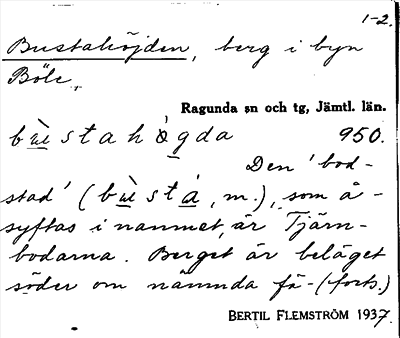 1-2.
Bustahöjden, berg i byn
Böle.
Ragunda sn och tg, Jämtl. län.
950.
Den 'bod-
stad' ( , m.), som å-
syftas i namnet, är Tjärn-
bodarna. Berget är beläget
söder om nämnda fä- (forts.)
BERTIL FLEMSTRÖM 1937.